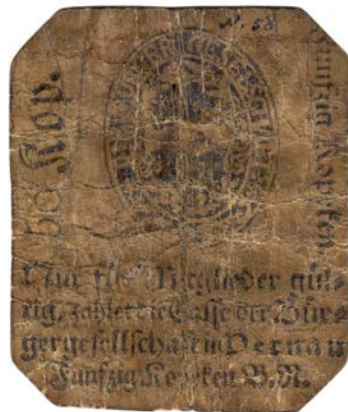 N. 58
50 Kop.
Funfzig Kopeken
Nur für Mitglieder gül-
tig, zahlet die Casse der Bür-
gergesellschaft in Pernau
Funfzig Kopeken B.N.